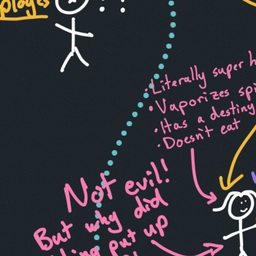 plages
! ?
Literally super h
• Vaporizes spi
• Has a destiny
• Doesn't eat
Not evil!
But why did
put up